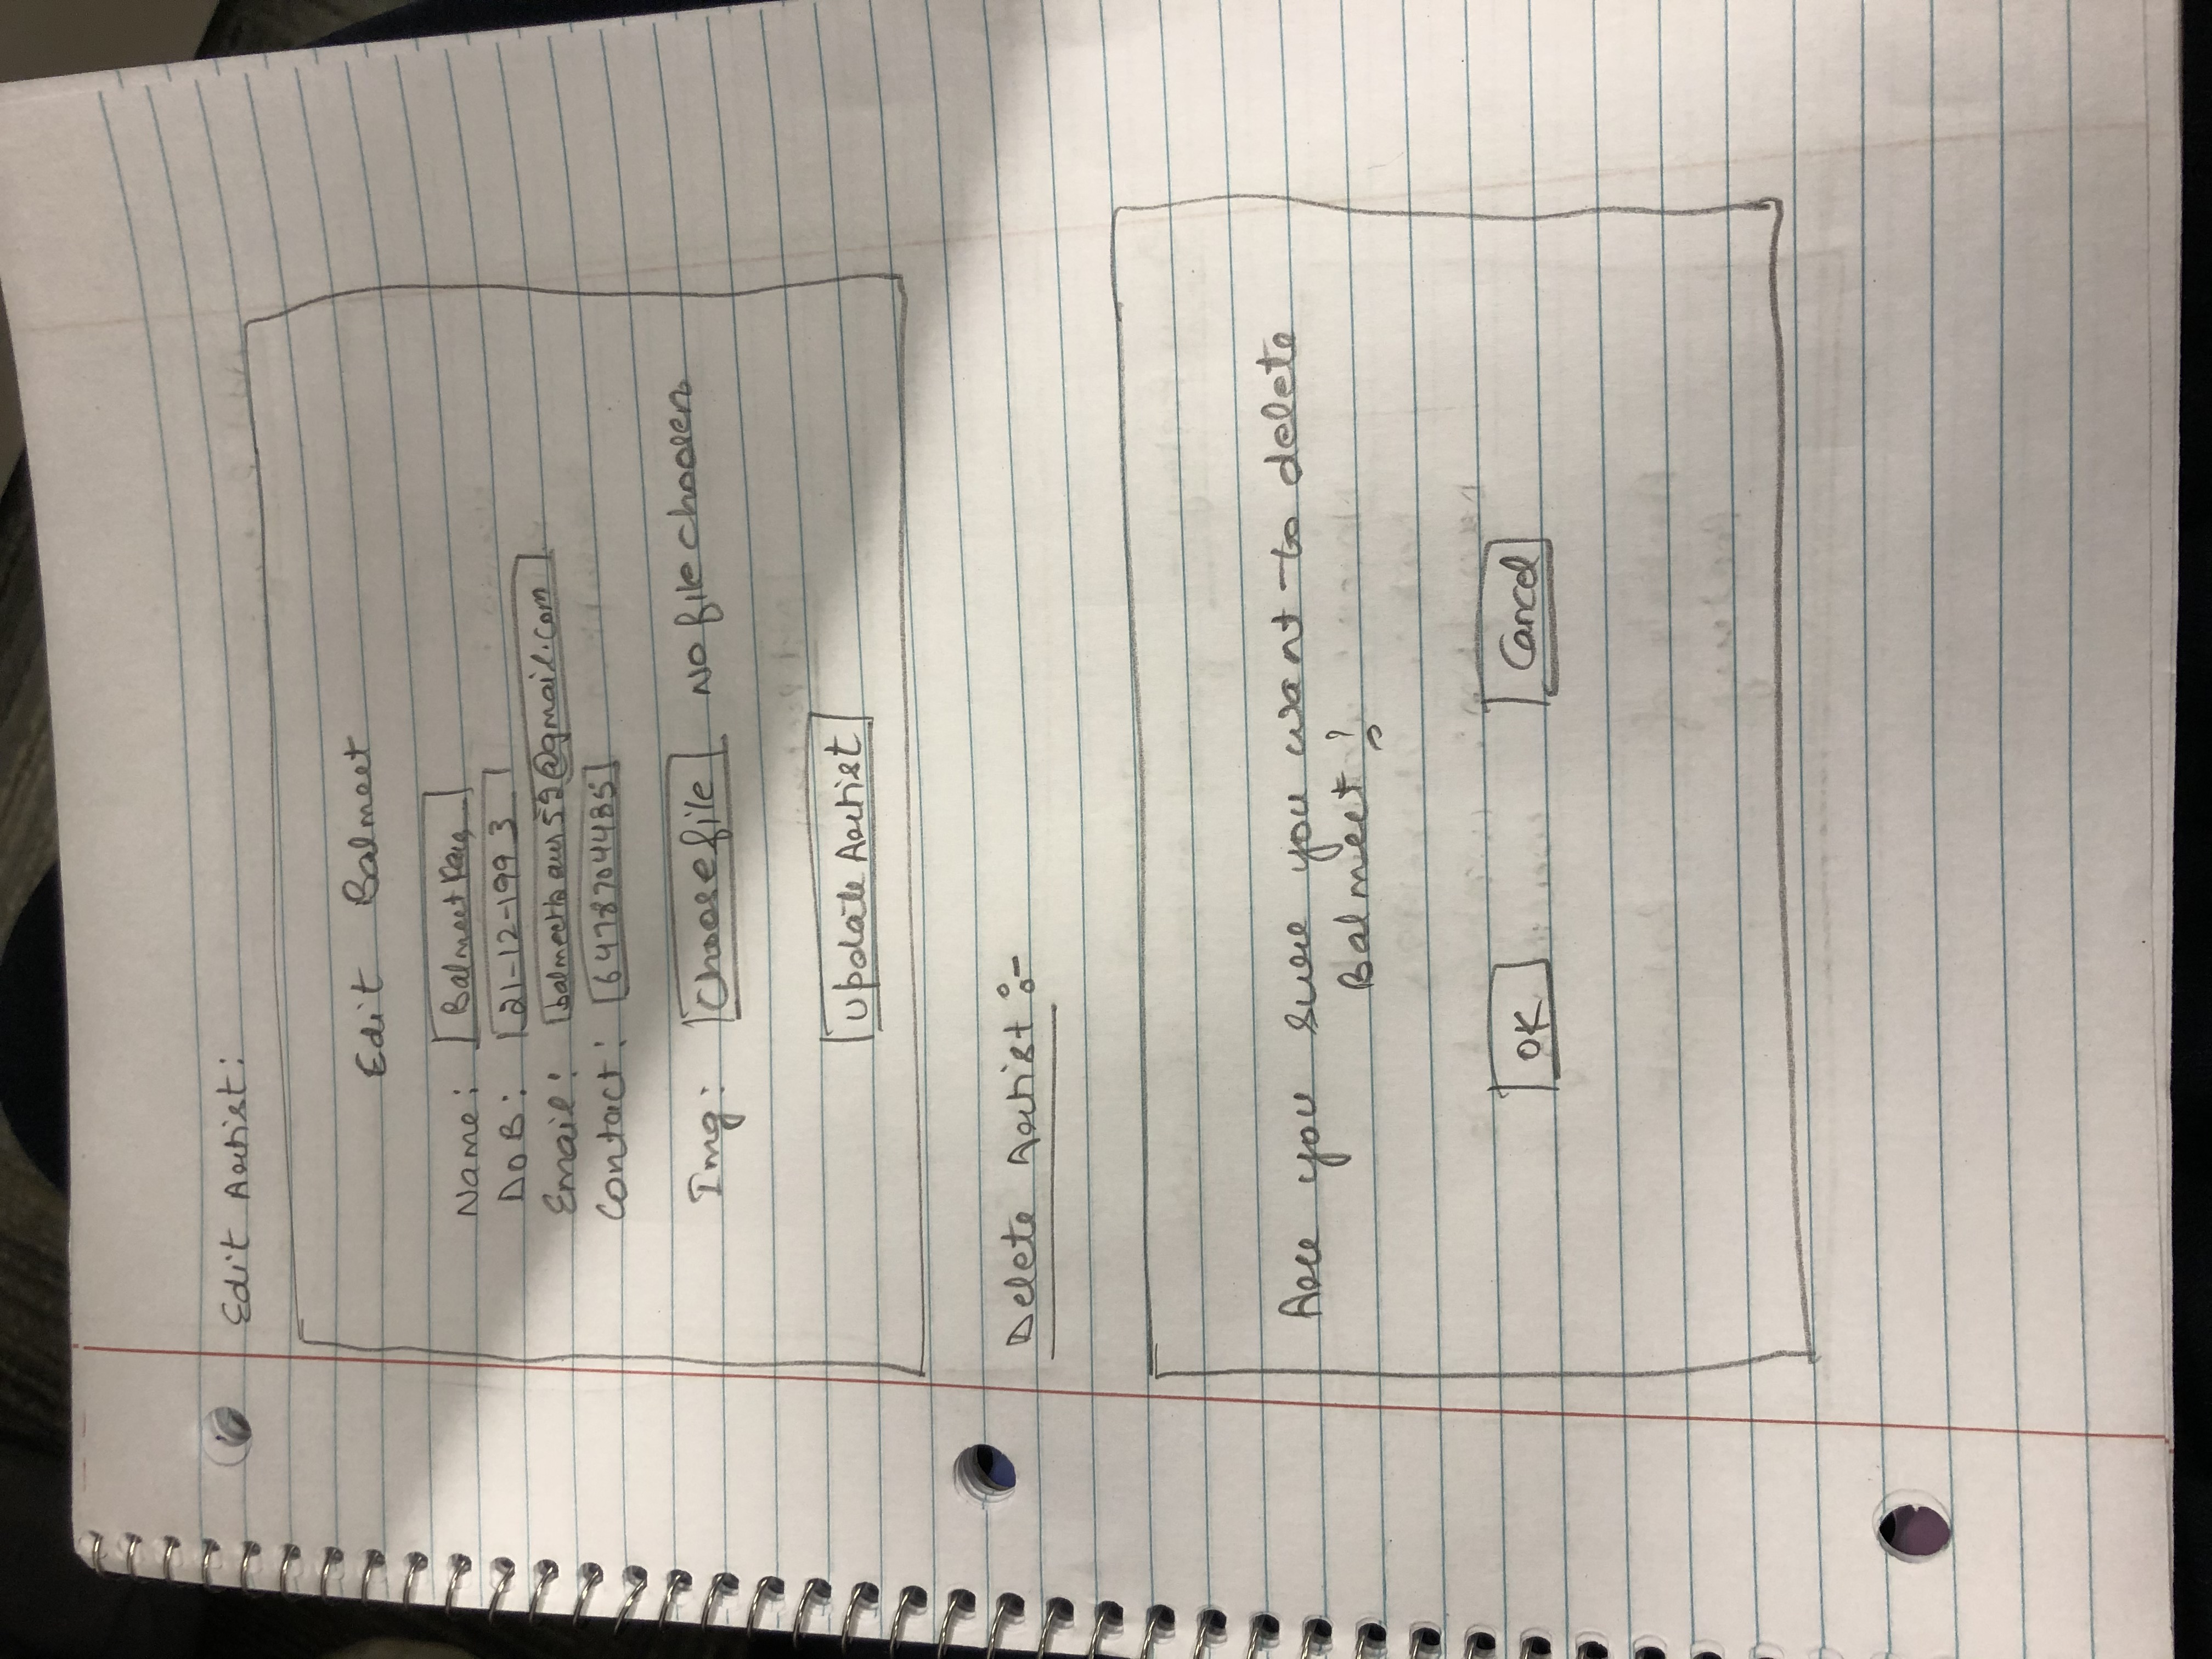 Edit Artist:
Edit Balmeet
Name: Balmeet Kaur
DOB: 21-12-1993
Email: balmeetkaur52@gmail.com
Contact: 6478704485
Img: Choose file No file choosen
Update Artist
Delete Artist :-
Are you sure you want to delete
Balmeet!
OK Cancel